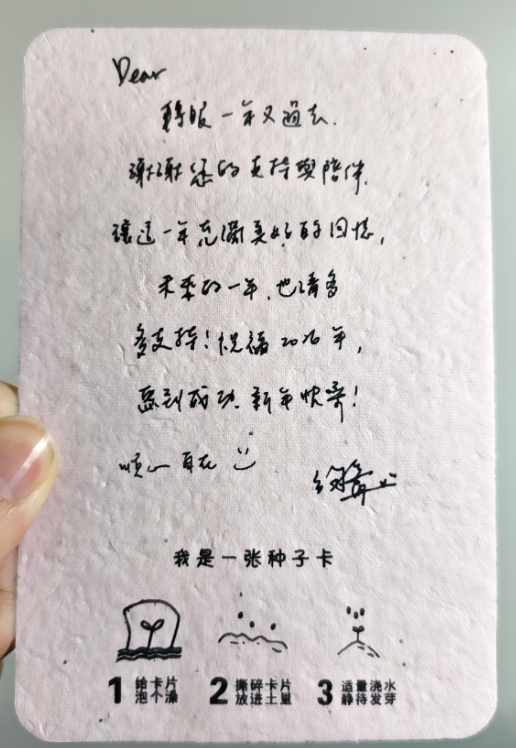 Dear
轉眼一年又過去.
謝謝您的支持與陪伴,
讓這一年充滿美好的回憶,
未來的一年,也請多
多支持!祝福2026年,
馬到成功、新年快樂!
順心 自在
我是一张种子卡
1 给卡片 2 撕碎卡片 3 适量浇水
泡个澡 放进土里 静待发芽